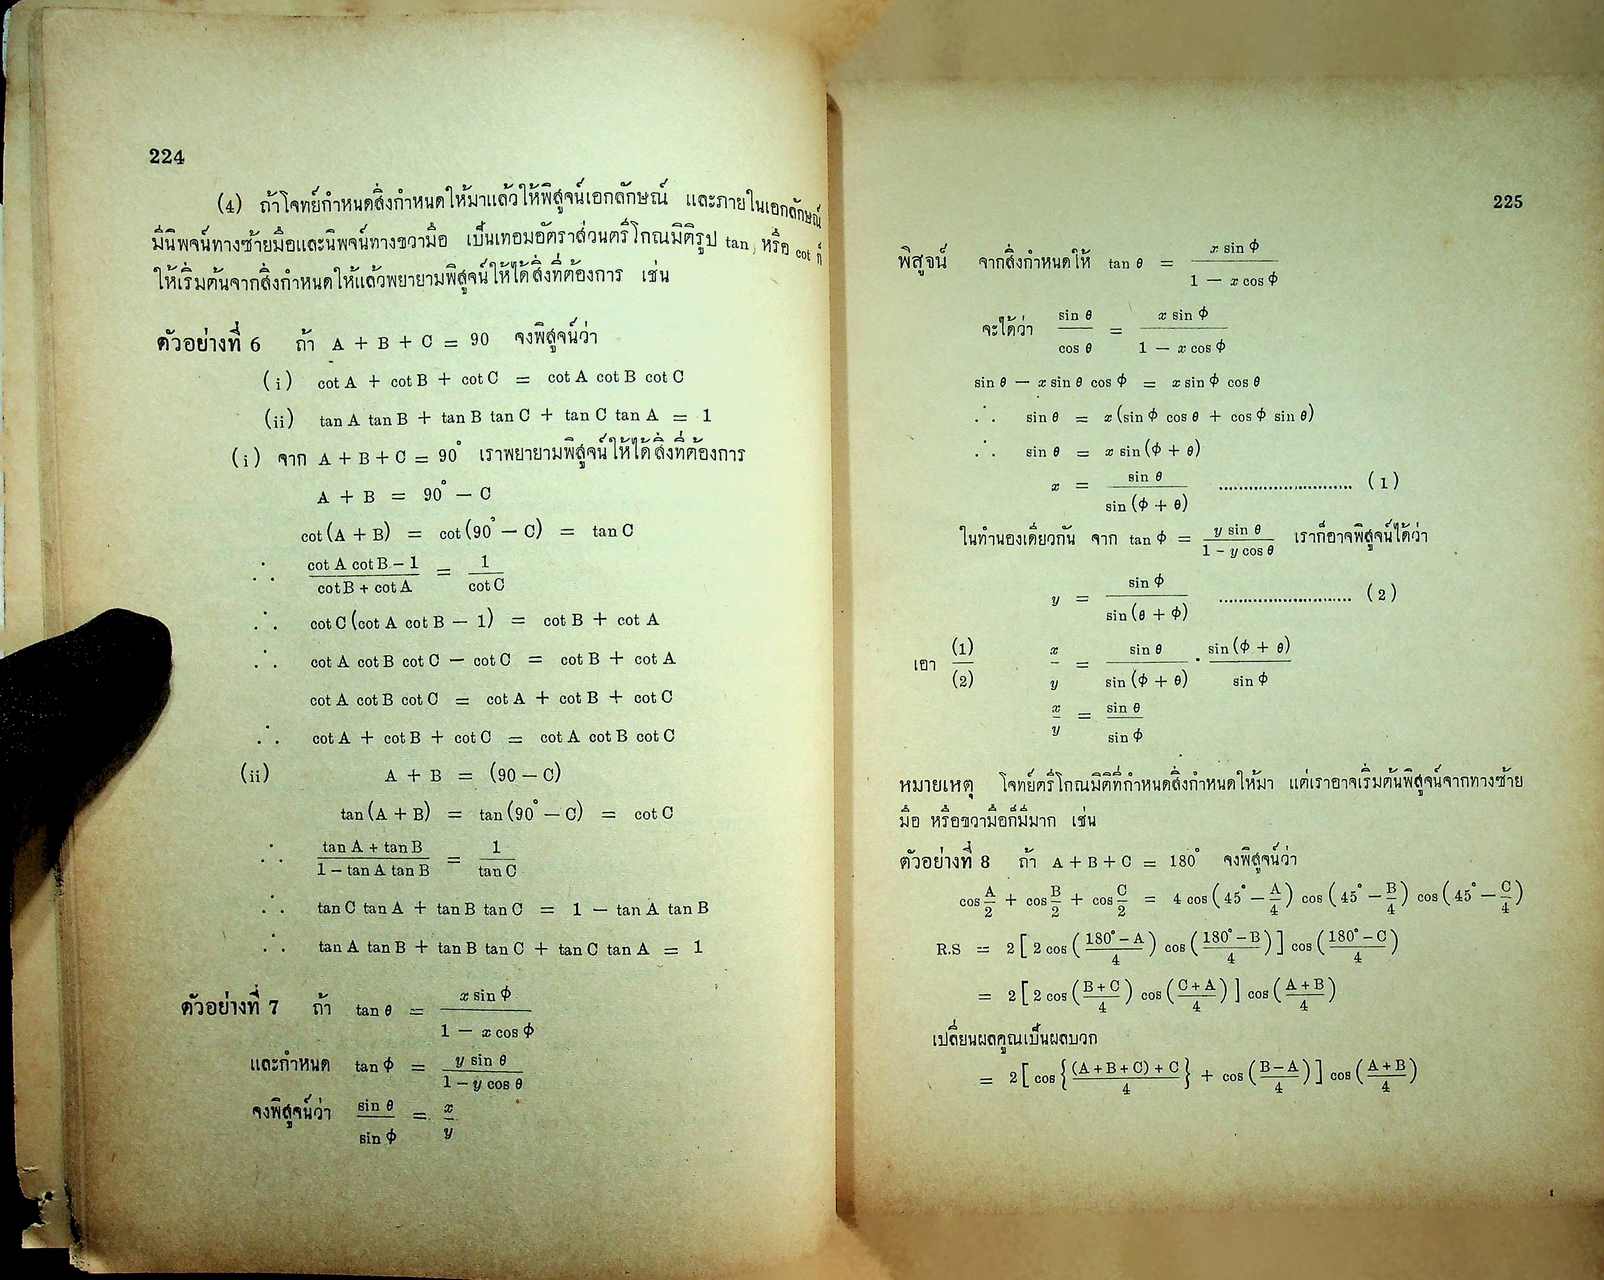 224
(4) ถ้าโจทย์กำหนดสิ่งกำหนดให้มาแล้วให้พิสูจน์เอกลักษณ์ และภายในเอกลักษณ์
มีนิพจน์ทางซ้ายมือและนิพจน์ทางขวามือ เป็นเทอมอัตราส่วนตรีโกณมิติรูป tan, หรือ cot ก็
ให้เริ่มต้นจากสิ่งกำหนดให้แล้วพยายามพิสูจน์ให้ได้สิ่งที่ต้องการ เช่น
ตัวอย่างที่ 6 ถ้า A + B + C = 90 จงพิสูจน์ว่า
(i) cot A + cot B + cot C = cot A cot B cot C
(ii) tan A tan B + tan B tan C + tan C tan A = 1
(i) จาก A + B + C = 90° เราพยายามพิสูจน์ให้ได้สิ่งที่ต้องการ
A + B = 90° − C
cot (A + B) = cot (90° − C) = tan C
∴ (cot A cot B − 1)/(cot B + cot A) = 1/cot C
∴ cot C (cot A cot B − 1) = cot B + cot A
∴ cot A cot B cot C − cot C = cot B + cot A
cot A cot B cot C = cot A + cot B + cot C
∴ cot A + cot B + cot C = cot A cot B cot C
(ii) A + B = (90 − C)
tan (A + B) = tan (90° − C) = cot C
∴ (tan A + tan B)/(1 − tan A tan B) = 1/tan C
∴ tan C tan A + tan B tan C = 1 − tan A tan B
∴ tan A tan B + tan B tan C + tan C tan A = 1
ตัวอย่างที่ 7 ถ้า tan θ = x sin φ/(1 − x cos φ)
และกำหนด tan φ = y sin θ/(1 − y cos θ)
จงพิสูจน์ว่า sin θ/sin φ = x/y
225
พิสูจน์ จากสิ่งกำหนดให้ tan θ = x sin φ/(1 − x cos φ)
จะได้ว่า sin θ/cos θ = x sin φ/(1 − x cos φ)
sin θ − x sin θ cos φ = x sin φ cos θ
∴ sin θ = x (sin φ cos θ + cos φ sin θ)
∴ sin θ = x sin (φ + θ)
x = sin θ/sin (φ + θ) .......................... (1)
ในทำนองเดียวกัน จาก tan φ = y sin θ/(1 − y cos θ) เราก็อาจพิสูจน์ได้ว่า
y = sin φ/sin (θ + φ) .......................... (2)
เอา (1)/(2) x/y = sin θ/sin (φ + θ) · sin (φ + θ)/sin φ
x/y = sin θ/sin φ
หมายเหตุ โจทย์ตรีโกณมิติที่กำหนดสิ่งกำหนดให้มา แต่เราอาจเริ่มต้นพิสูจน์จากทางซ้าย
มือ หรือขวามือก็มีมาก เช่น
ตัวอย่างที่ 8 ถ้า A + B + C = 180° จงพิสูจน์ว่า
cos A/2 + cos B/2 + cos C/2 = 4 cos (45° − A/4) cos (45° − B/4) cos (45° − C/4)
R.S = 2 [ 2 cos ((180° − A)/4) cos ((180° − B)/4) ] cos ((180° − C)/4)
= 2 [ 2 cos ((B + C)/4) cos ((C + A)/4) ] cos ((A + B)/4)
เปลี่ยนผลคูณเป็นผลบวก
= 2 [ cos {((A + B + C) + C)/4} + cos ((B − A)/4) ] cos ((A + B)/4)